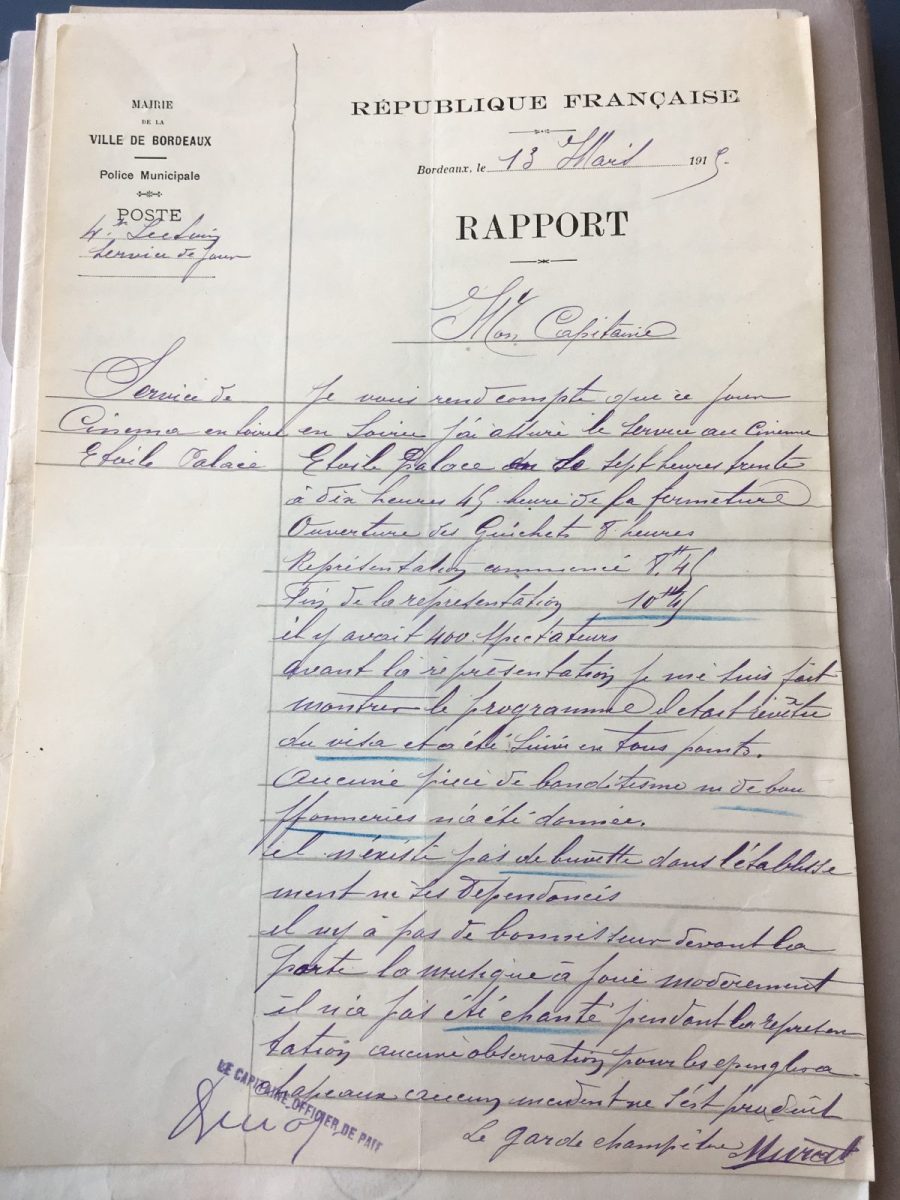 MAIRIE
DE LA
VILLE DE BORDEAUX
Police Municipale
POSTE
4e Section
Service de jour
RÉPUBLIQUE FRANÇAISE
Bordeaux, le 13 Mars 1915
RAPPORT
Mon Capitaine
Service de
Cinema en soirée
Etoile Palace
Je vous rend compte que ce jour
en soirée j'ai assuré le service au Cinema
Etoile Palace de sept heures trente
à dix heures 45 heure de la fermeture
Ouverture des Guichets 8 heures
Représentation commencé 8H45
Fin de la representation 10H45
il y avait 400 spectateurs
avant la représentation je me suis fait
montrer le programme il etait revêtu
du visa et a été suivi en tous points.
aucune pièce de banditisme ni de bou
ffonneries n'a été donnée.
il n'éxiste pas de buvette dans l'établisse
ment ne ses Dependances
il ny à pas de bonnisseur devant la
porte la musique à joué moderement
il n'a pas été chanté pendant la represen
tation aucune observation pour les epingles a
chapeaux aucun incident ne s'est produit
Le garde champêtre
Murat
LE CAPITAINE, OFFICIER DE PAIX